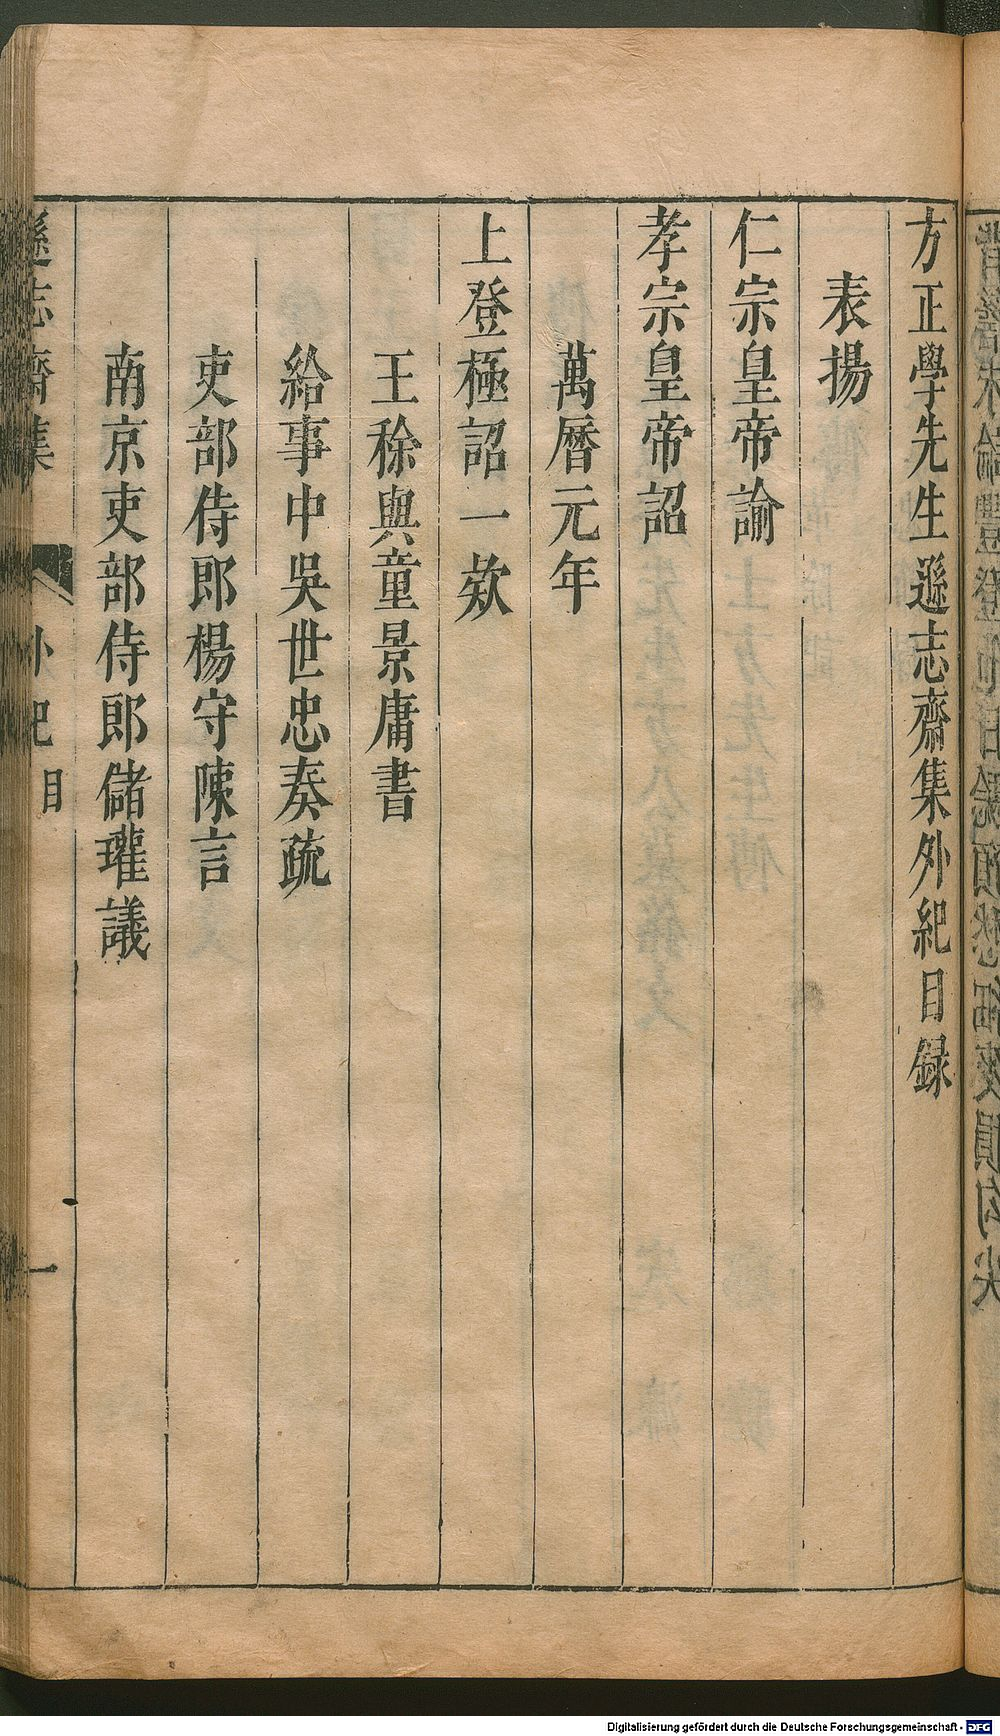 方正學先生遜志齋集外紀目錄
表揚
仁宗皇帝諭
孝宗皇帝詔
萬曆元年
上登極詔一欵
王稌與童景庸書
給事中吳世忠奏疏
吏部侍郎楊守陳言
南京吏部侍郎儲瓘議
遜志齋集 外紀目 一
Digitalisierung gefördert durch die Deutsche Forschungsgemeinschaft - DFG